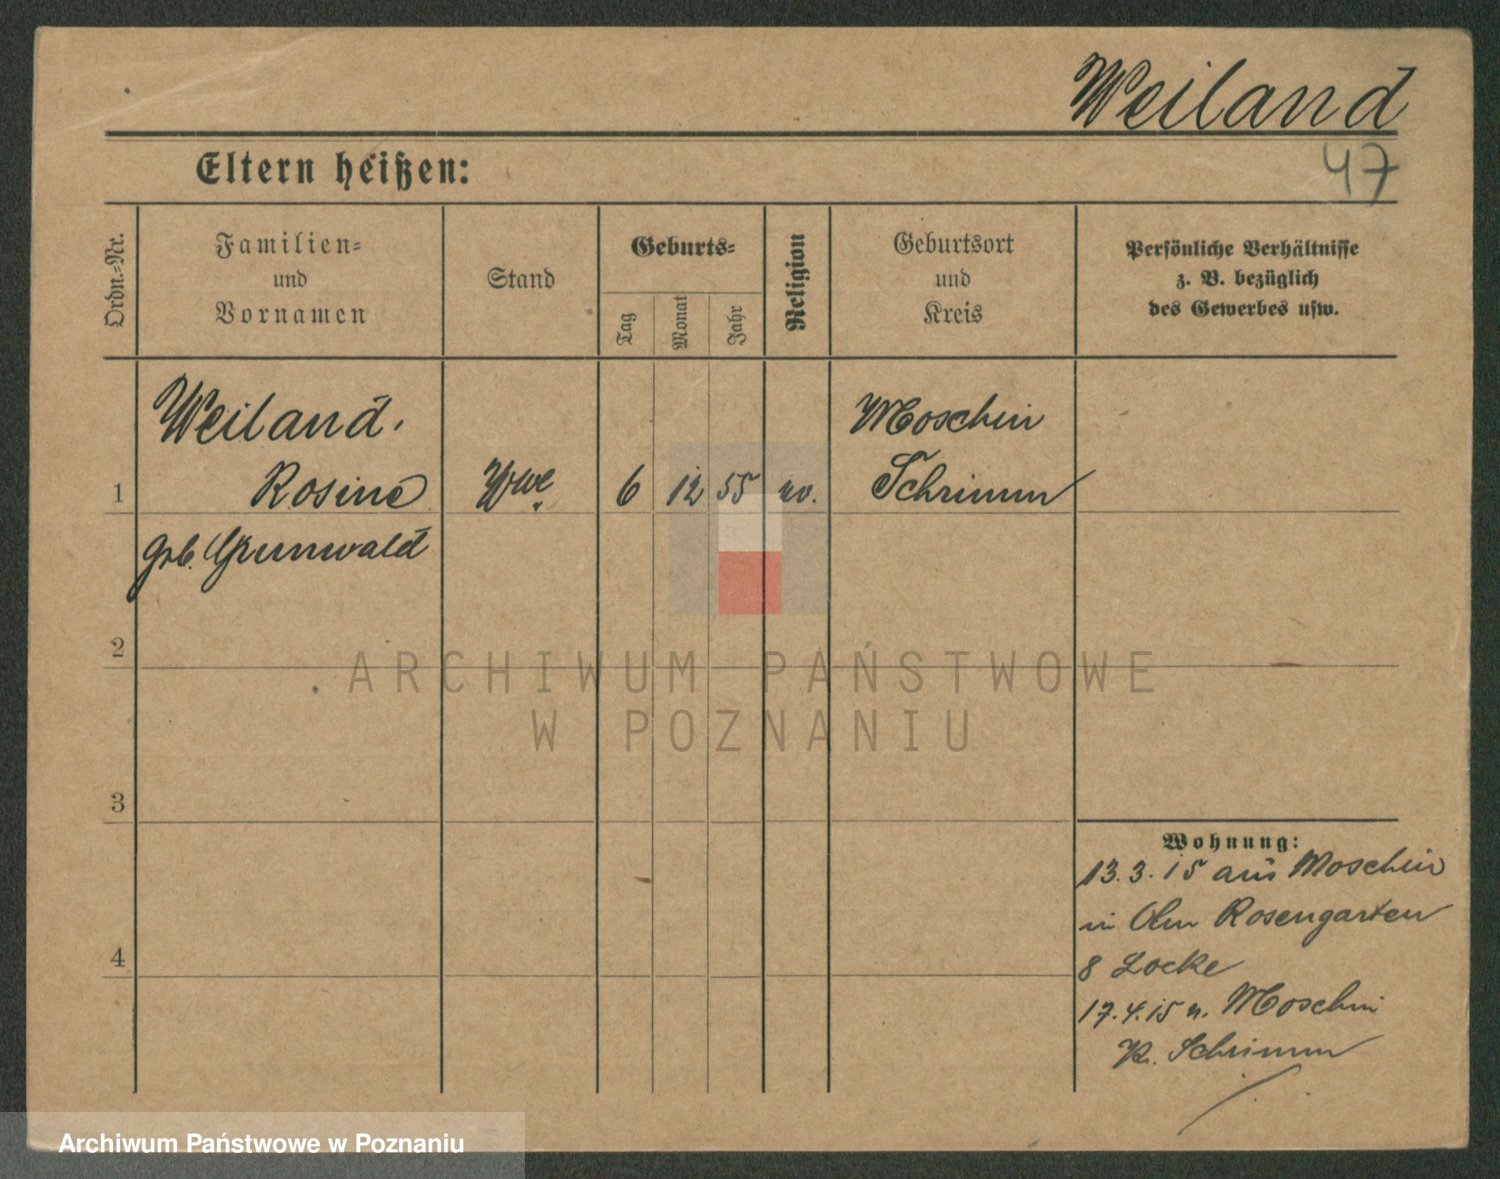 Weiland
47
Eltern heißen:
Ordn.-Nr.
Familien-
und
Vornamen
Stand
Geburts-
Tag
Monat
Jahr
Religion
Geburtsort
und
Kreis
Persönliche Verhältnisse
z. B. bezüglich
des Gewerbes usw.
Weiland.
1 Rosine Wwe 6 12 55 ev.
Moschin
Schrimm
geb. Grunwald
2
3
4
Wohnung:
13.3.15 aus Moschin
in Rosengarten
8 Locke
17.4.15 n. Moschin
K. Schrimm
ARCHIWUM PAŃSTWOWE
W POZNANIU
Archiwum Państwowe w Poznaniu